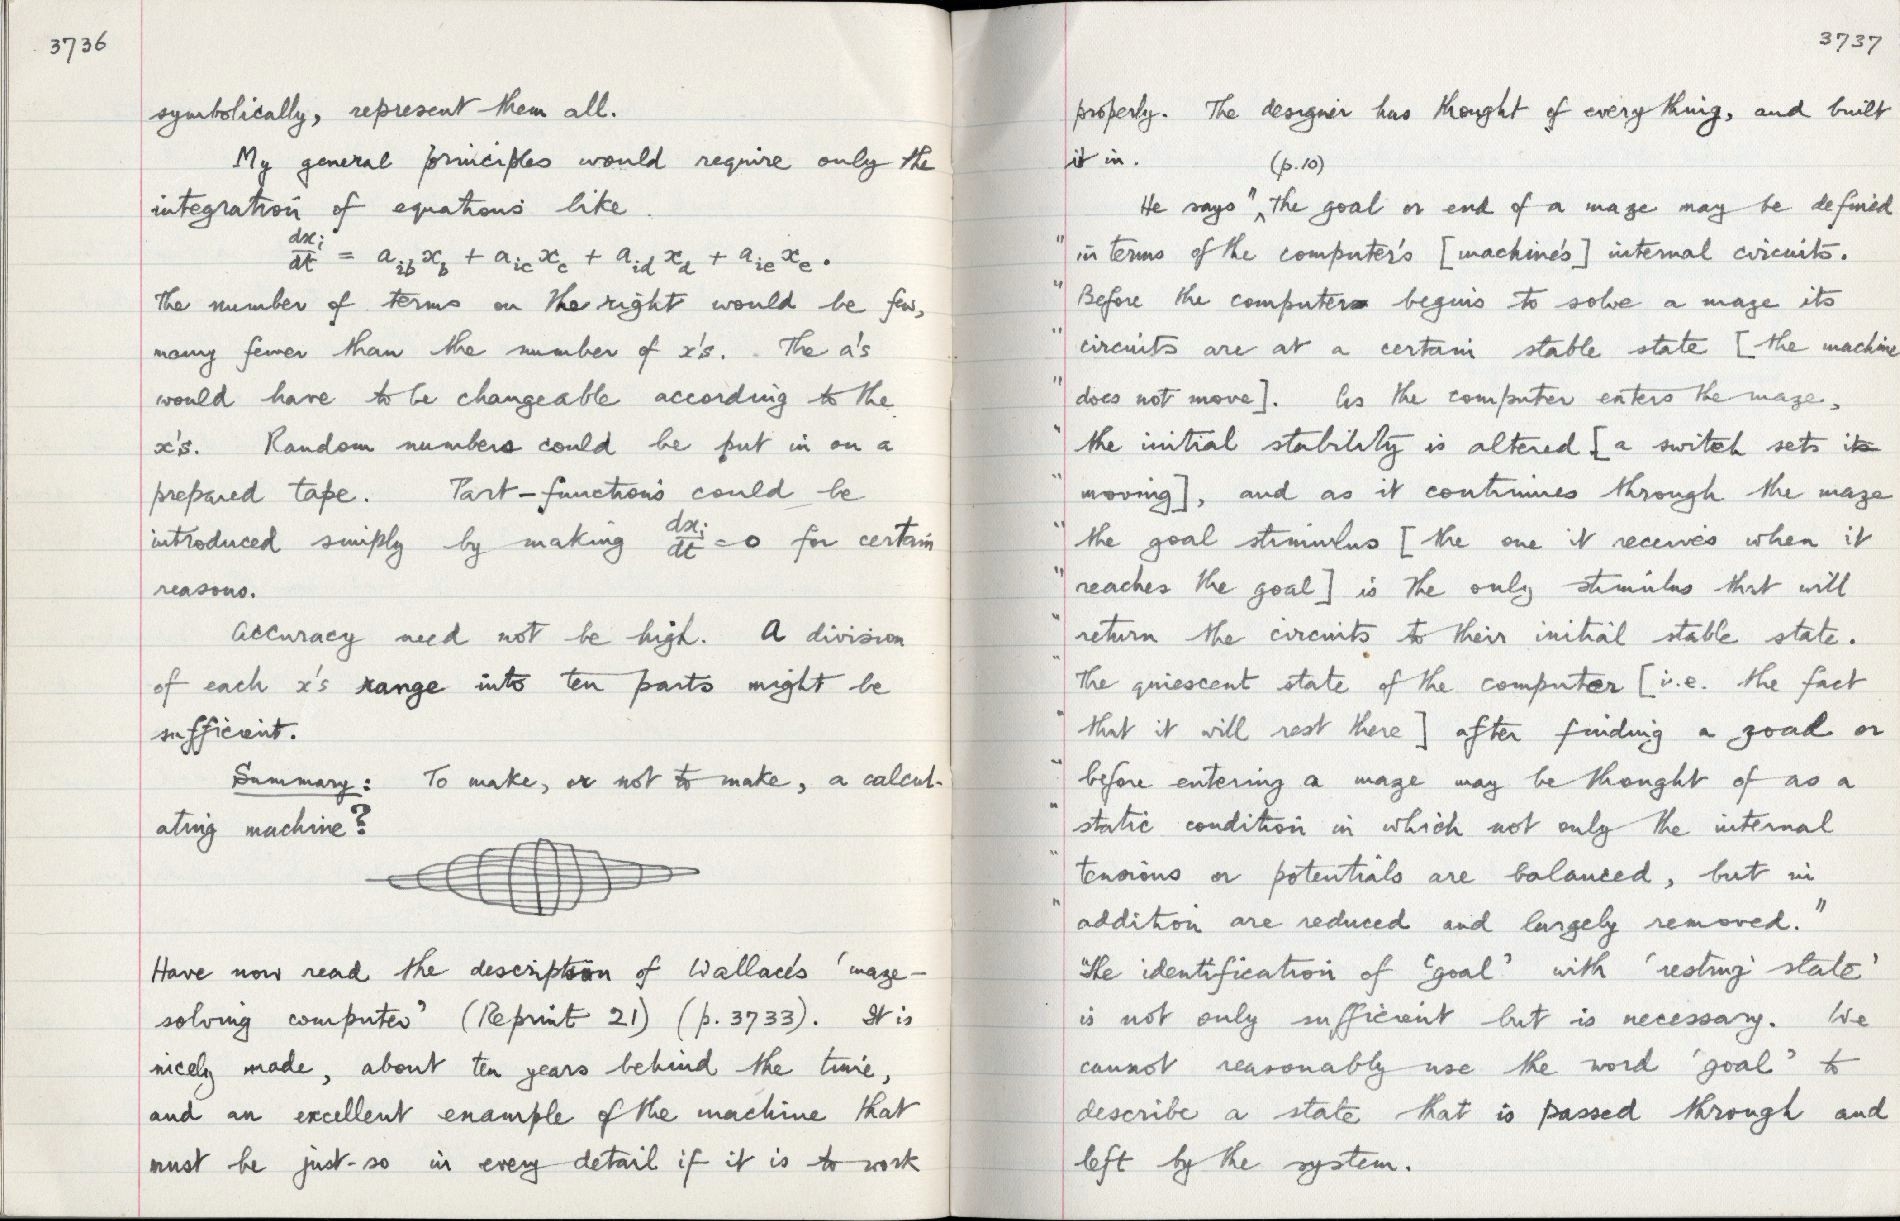 3736
symbolically, represent them all.
My general principles would require only the
integration of equations like
dxi/dt = aib xb + aic xc + aid xd + aie xe .
The number of terms on the right would be few,
many fewer than the number of x's. The a's
would have to be changeable according to the
x's. Random numbers could be put in on a
prepared tape. Part-functions could be
introduced simply by making dxi/dt = 0 for certain
reasons.
Accuracy need not be high. A division
of each x's range into ten parts might be
sufficient.
Summary: To make, or not to make, a calcul-
ating machine?
Have now read the description of Wallace's 'maze-
solving computer' (Reprint 21) (p. 3733). It is
nicely made, about ten years behind the time,
and an excellent example of the machine that
must be just-so in every detail if it is to work
3737
properly. The designer has thought of every thing, and built
it in. (p. 10)
He says "‸The goal or end of a maze may be defined
" in terms of the computer's [machine's] internal circuits.
" Before the computer begins to solve a maze its
" circuits are at a certain stable state [the machine
" does not move]. As the computer enters the maze,
" the initial stability is altered [a switch sets it
" moving], and as it continues through the maze
" the goal stimulus [the one it receives when it
" reaches the goal] is the only stimulus that will
" return the circuits to their initial stable state.
" The quiescent state of the computer [i.e. the fact
" that it will rest there] after finding a goal or
" before entering a maze may be thought of as a
" static condition in which not only the internal
" tensions or potentials are balanced, but in
" addition are reduced and largely removed."
The identification of 'goal' with 'resting state'
is not only sufficient but is necessary. We
cannot reasonably use the word 'goal' to
describe a state that is passed through and
left by the system.